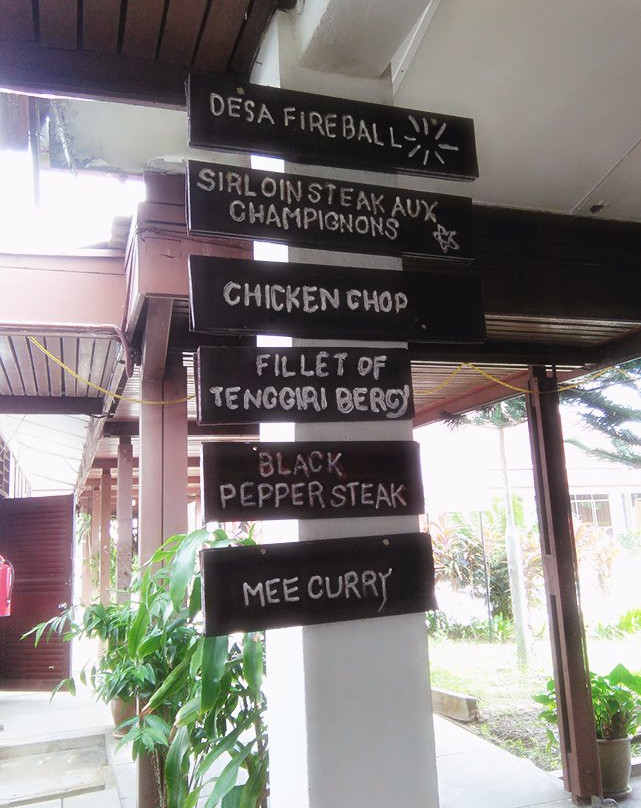 DESA FIREBALL
SIRLOIN STEAK AUX
CHAMPIGNONS
CHICKEN CHOP
FILLET OF
TENGGIRI BERCY
BLACK
PEPPER STEAK
MEE CURRY